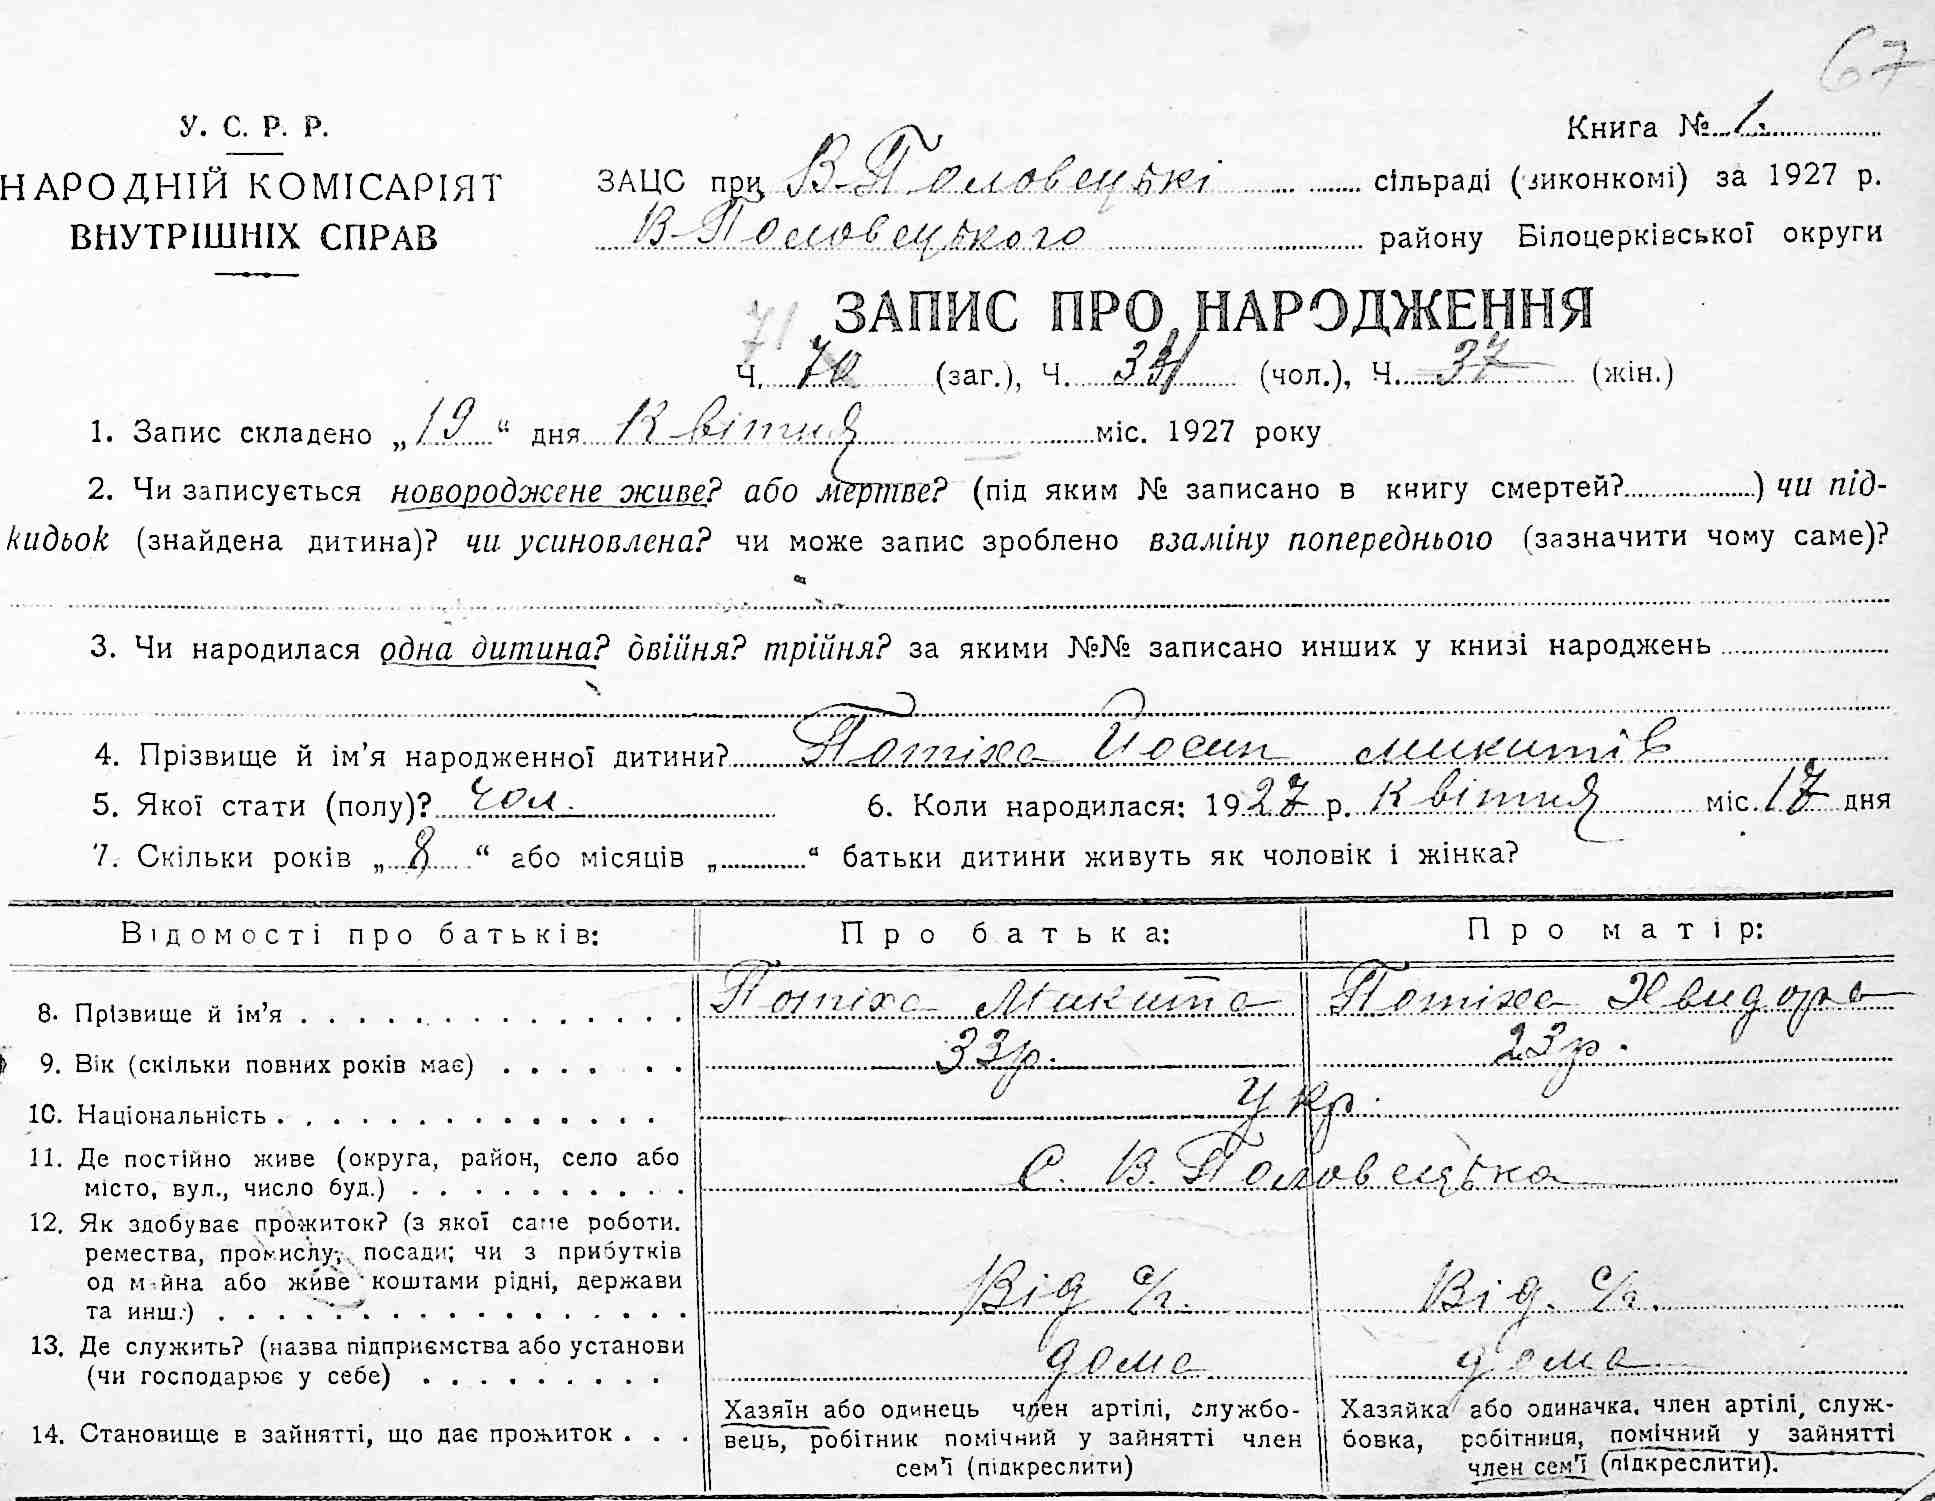 67
У. С. Р. Р.
НАРОДНІЙ КОМІСАРІЯТ
ВНУТРІШНІХ СПРАВ
Книга № 1.
ЗАЦС при В-Половецькі сільраді (виконкомі) за 1927 р.
В-Половецького району Білоцерківської округи
ЗАПИС ПРО НАРОДЖЕННЯ
71
Ч. 70 (заг.), Ч. 34 (чол.), Ч. 37 (жін.)
1. Запис складено „19“ дня Квітня міс. 1927 року
2. Чи записується новороджене живе? або мертве? (під яким № записано в книгу смертей?..........) чи під-
кидьок (знайдена дитина)? чи усиновлена? чи може запис зроблено взаміну попереднього (зазначити чому саме)?
3. Чи народилася одна дитина? двійня? трійня? за якими №№ записано инших у книзі народжень
4. Прізвище й ім'я народженної дитини? Потіха Йосип микитів
5. Якої стати (полу)? Чол. 6. Коли народилася: 1927 р. Квітня міс. 17 дня
7. Скільки років „8“ або місяців „..........“ батьки дитини живуть як чоловік і жінка?
Відомості про батьків: Про батька: Про матір:
8. Прізвище й ім'я . . . Потіха Микита Потіха Хвидора
9. Вік (скільки повних років має) . . . 33р. 23р.
10. Національність . . . Укр.
11. Де постійно живе (округа, район, село або
місто, вул., число буд.) . . . С. В. Половецька
12. Як здобуває прожиток? (з якої саме роботи.
ремества, промислу, посади; чи з прибутків
од майна або живе коштами рідні, держави
та инш.) . . . Від с/г. Від. с/г.
13. Де служить? (назва підприємства або установи
(чи господарює у себе) . . . дома дома
14. Становище в зайнятті, що дає прожиток . . .
Хазяїн або одинець член артілі, службо-
вець, робітник помічний у зайнятті член
сем'ї (підкреслити)
Хазяйка або одиначка. член артілі, служ-
бовка, робітниця, помічний у зайнятті
член сем'ї (підкреслити).